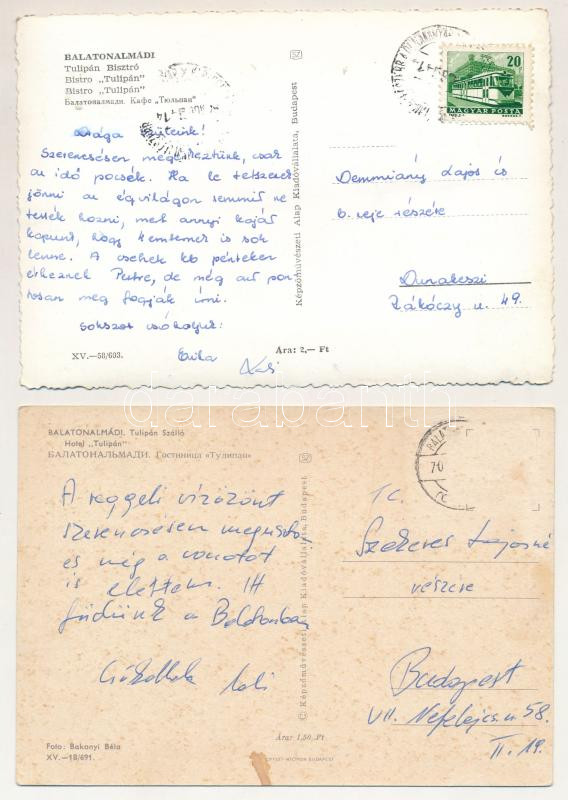 BALATONALMÁDI
Tulipán Bisztró
Bistro „Tulipán"
Bistro „Tulipán"
Балатоналмади. Кафе „Тюльпан"
20
MAGYAR POSTA
Szerencsésen megérkeztünk, csak
az idő pocsék. Ha le tetszenek
jönni az égvilágon semmit ne
tessék hozni, mert annyi kaját
kapunk, hogy is sok
lenne. A csehek kb pénteken
érkeznek Pestre, de még azt pon
tosan meg fogják írni.
Sokszor csókoljuk:
Demmiány Lajos és
b. neje részére
Dunakeszi
Rákóczy u. 49.
XV.—58/603.
Ára: 2,— Ft
Képzőművészeti Alap Kiadóvállalata, Budapest
darabanth
BALATONALMÁDI. Tulipán Szálló
Hotel „Tulipán"
БАЛАТОНАЛЬМАДИ. Гостиница «Тулипан»
70
A reggeli vízözönt
szerencsésen megúsztam
és még a vonatot
is elértem. Itt
fürdünk a Balatonban
Csókollak
Szekeres Lajosné
részére
Budapest
VII. Nefelejcs u 58.
II. 19.
© Képzőművészeti Alap Kiadóvállalata, Budapest
Ára: 1,50 Ft
Foto: Bakonyi Béla
XV.—18/691.
OFFSET-NYOMDA BUDAPEST